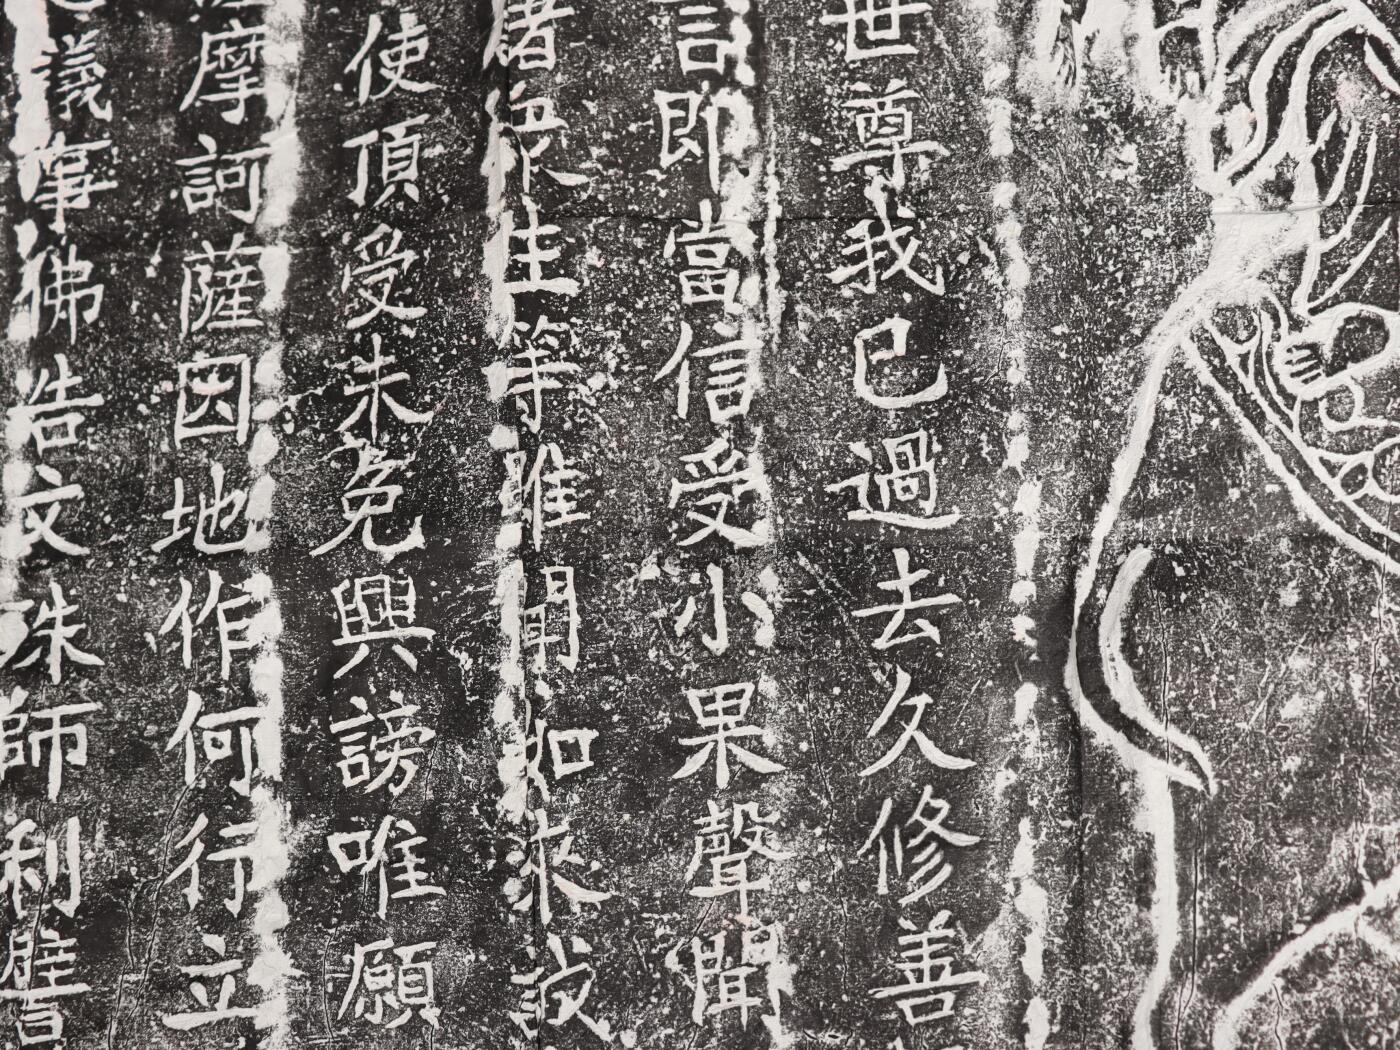 世尊我已過去久修善
言即當信受小果聲聞
諸衆生等雖聞如來誠
使頂受未免興謗唯願
摩訶薩因地作何行立
議事佛告文殊師利譬